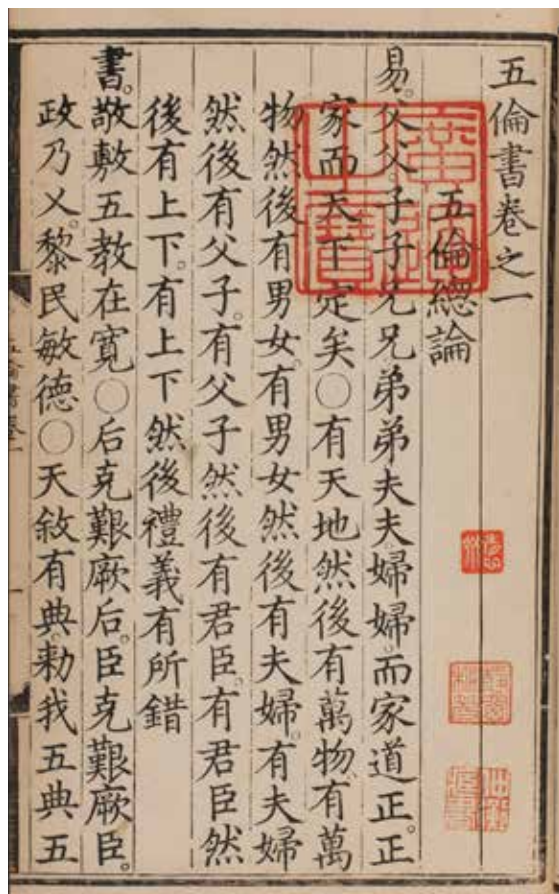 五倫書卷之一
五倫總論
易。父父。子子。兄兄。弟弟。夫夫。婦婦。而家道正。正
家而天下定矣○有天地然後有萬物。有萬
物然後有男女。有男女然後有夫婦。有夫婦
然後有父子。有父子然後有君臣。有君臣然
後有上下。有上下然後禮義有所錯
書。敬敷五教在寬○后克艱厥后。臣克艱厥臣。
政乃乂。黎民敏德○天敘有典勑我五典五